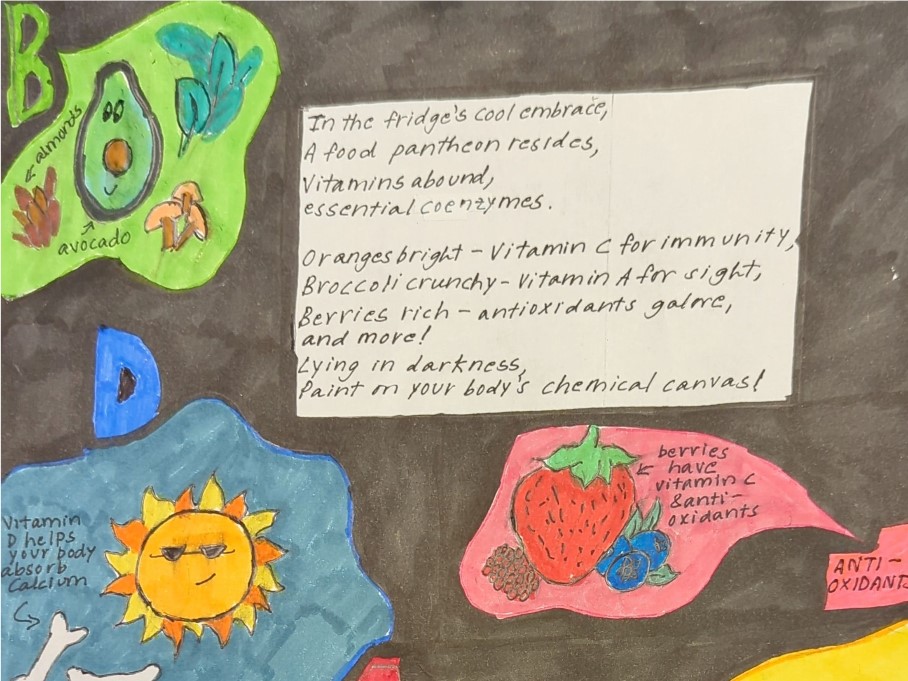 B
almonds
avocado
In the fridge's cool embrace,
A food pantheon resides,
Vitamins abound,
essential coenzymes.
Oranges bright - Vitamin C for immunity,
Broccoli crunchy - Vitamin A for sight,
Berries rich - antioxidants galore,
and more!
Lying in darkness,
Paint on your body's chemical canvas!
D
Vitamin
D helps
your body
absorb
Calcium
berries
have
vitamin C
& anti-
oxidants
ANTI-
OXIDANTS